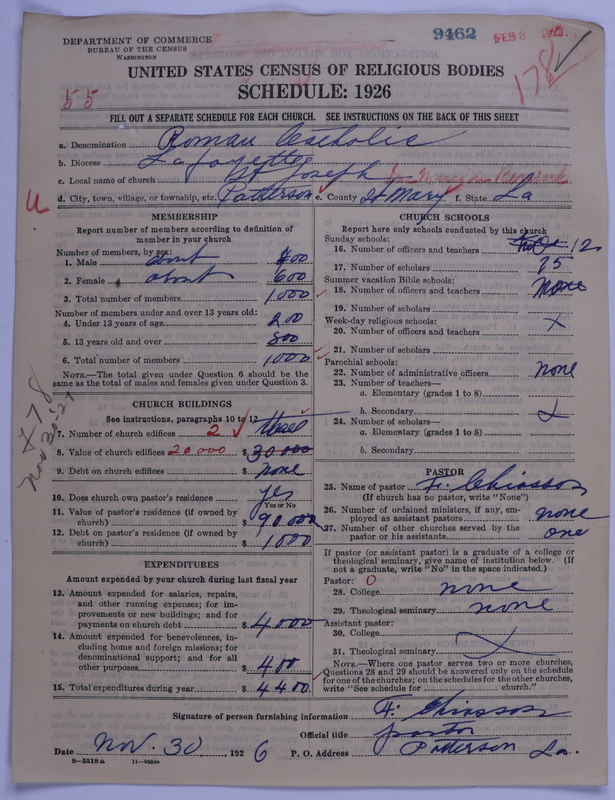 DEPARTMENT OF COMMERCE
BUREAU OF THE CENSUS
WASHINGTON
9462
FEB 8
178
UNITED STATES CENSUS OF RELIGIOUS BODIES
SCHEDULE: 1926
55
FILL OUT A SEPARATE SCHEDULE FOR EACH CHURCH. SEE INSTRUCTIONS ON THE BACK OF THIS SHEET
a. Denomination Roman Catholic
b. Diocese Lafayette
c. Local name of church St Joseph
d. City, town, village, or township, etc. Patterson e. County St Mary f. State La
MEMBERSHIP
Report number of members according to definition of member in your church
Number of members, by sex:
1. Male about 400
2. Female about 600
3. Total number of members 1000
Number of members under and over 13 years old:
4. Under 13 years of age 200
5. 13 years old and over 800
6. Total number of members 1000
NOTE.—The total given under Question 6 should be the same as the total of males and females given under Question 3.
CHURCH BUILDINGS
See instructions, paragraphs 10 to 12
7. Number of church edifices 2 three
8. Value of church edifices 20 000 $ 30 000
9. Debt on church edifices $ none
10. Does church own pastor's residence yes
Yes or No
11. Value of pastor's residence (if owned by church) $
12. Debt on pastor's residence (if owned by church) $ 1000
4-78
Nov 30-27
EXPENDITURES
Amount expended by your church during last fiscal year
13. Amount expended for salaries, repairs, and other running expenses; for improvements or new buildings; and for payments on church debt $ 4000
14. Amount expended for benevolences, including home and foreign missions; for denominational support; and for all other purposes $ 400
15. Total expenditures during year $ 4400
CHURCH SCHOOLS
Report here only schools conducted by this church
Sunday schools:
16. Number of officers and teachers 12
17. Number of scholars 75
Summer vacation Bible schools:
18. Number of officers and teachers None
19. Number of scholars
Week-day religious schools:
20. Number of officers and teachers x
21. Number of scholars
Parochial schools:
22. Number of administrative officers none
23. Number of teachers—
a. Elementary (grades 1 to 8)
b. Secondary x
24. Number of scholars—
a. Elementary (grades 1 to 8)
b. Secondary
PASTOR
25. Name of pastor F. Chiasson
(If church has no pastor, write "None")
26. Number of ordained ministers, if any, employed as assistant pastors none
27. Number of other churches served by the pastor or his assistants one
If pastor (or assistant pastor) is a graduate of a college or theological seminary, give name of institution below. (If not a graduate, write "No" in the space indicated.)
Pastor: 0
28. College none
29. Theological seminary none
Assistant pastor:
30. College
31. Theological seminary x
NOTE.—Where one pastor serves two or more churches, Questions 28 and 29 should be answered only on the schedule for one of the churches; on the schedules for the other churches, write "See schedule for church."
Signature of person furnishing information F. Chiasson
Official title pastor
Date Nov. 30 1926 P. O. Address Patterson La.
8-5518 a